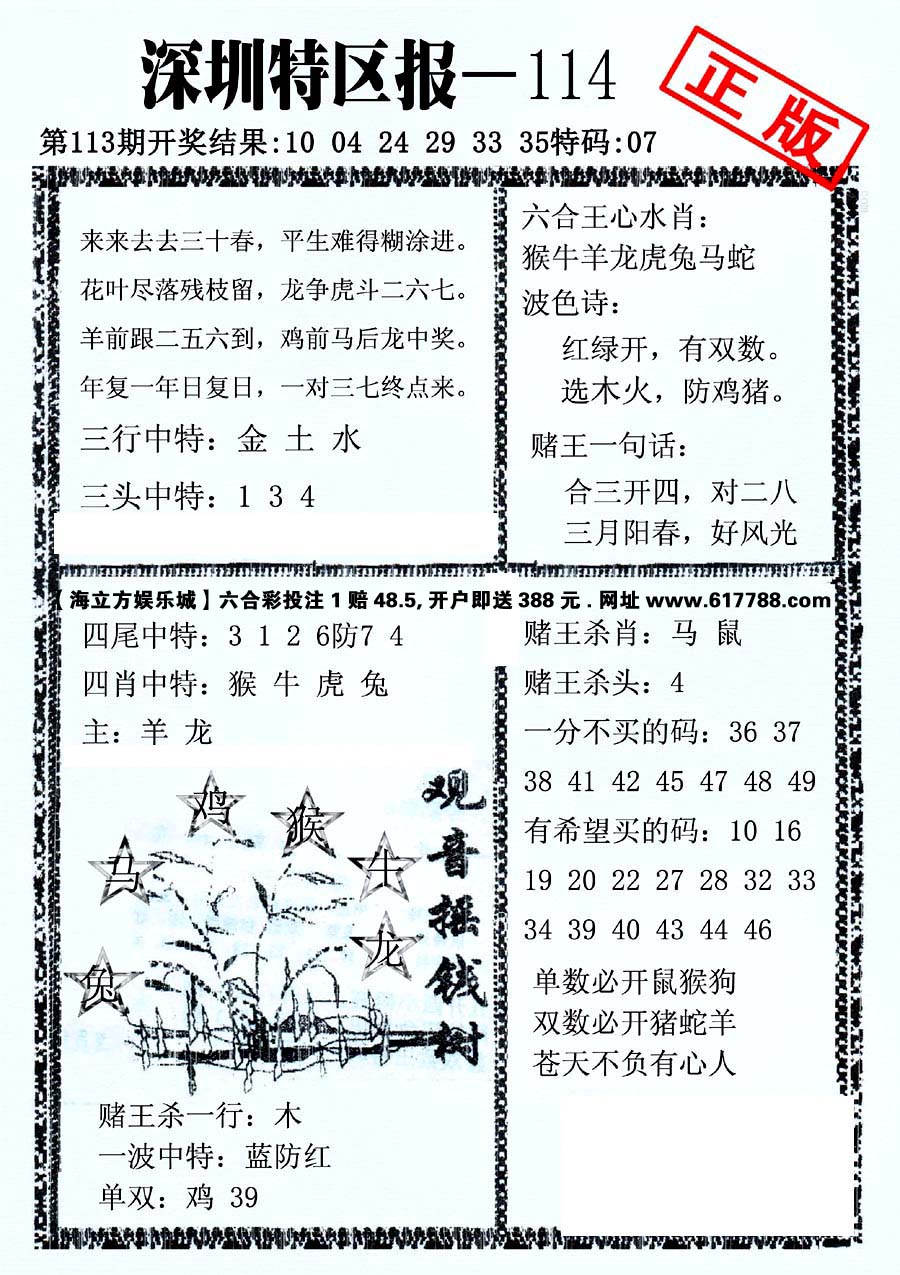 深圳特区报—114
正版
第113期开奖结果:10 04 24 29 33 35特码:07
来来去去三十春，平生难得糊涂进。
花叶尽落残枝留，龙争虎斗二六七。
羊前跟二五六到，鸡前马后龙中奖。
年复一年日复日，一对三七终点来。
三行中特：金 土 水
三头中特：1 3 4
六合王心水肖：
猴牛羊龙虎兔马蛇
波色诗：
红绿开，有双数。
选木火，防鸡猪。
赌王一句话：
合三开四，对二八
三月阳春，好风光
【海立方娱乐城】六合彩投注 1 赔 48.5, 开户即送 388 元 . 网址 www.617788.com
四尾中特：3 1 2 6防7 4
四肖中特：猴 牛 虎 兔
主：羊 龙
鸡
猴
马
牛
龙
兔
观音摇钱树
赌王杀一行：木
一波中特：蓝防红
单双：鸡 39
赌王杀肖：马 鼠
赌王杀头：4
一分不买的码：36 37
38 41 42 45 47 48 49
有希望买的码：10 16
19 20 22 27 28 32 33
34 39 40 43 44 46
单数必开鼠猴狗
双数必开猪蛇羊
苍天不负有心人